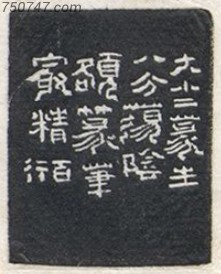 750747.com
大小二篆生
八分蕩陰
頟篆筆
㝡精